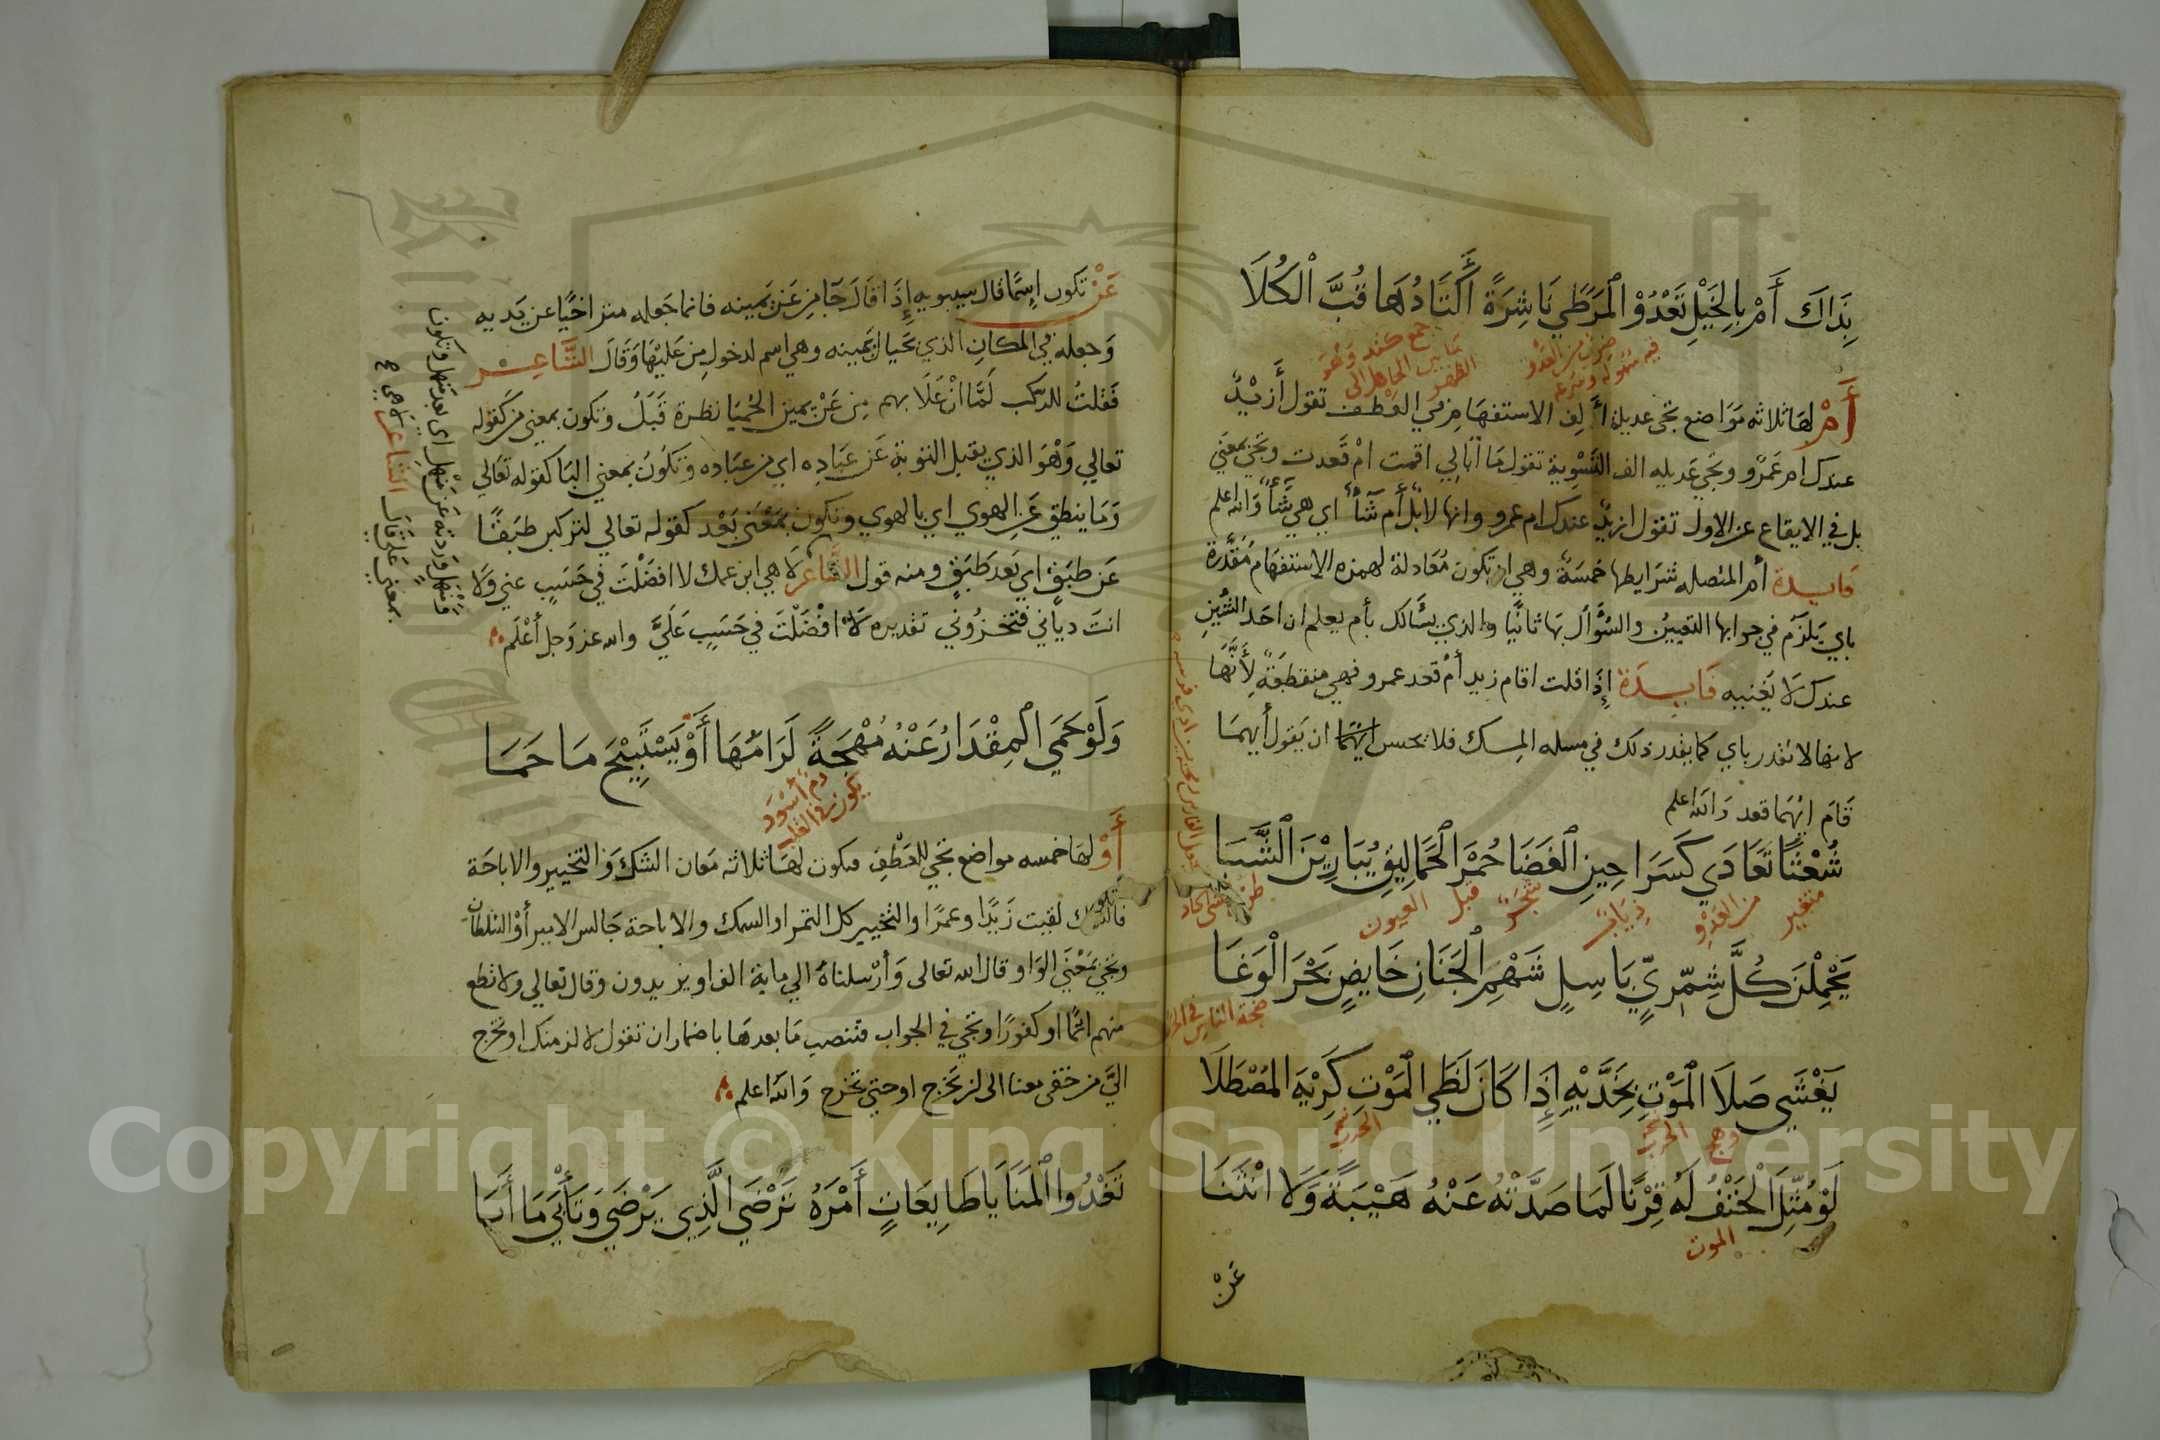 بِذَاكَ أَمْ بِالخَيْلِ تَعْدُوْ المَرَطَي نَاشِرَةً أَكْتَادُهَا قُبَّ الْكُلَا
فيه سهولة وسرعة
ضرب من العدو
جمع كتد وهو
ما بين الكاهل الى
الظهر
أَمْ لهَا ثلاثه مَوَاضع تجى عديلة أَلِف الاستفهَام في العَطف تقول أَزيْدٌ
عندك ام عَمْرو وتجي عَديله الف التَسْوية تقول مَا أبَالي اقمت امْ قَعدت وتجي بمعني
بل في الايقاع عن الاول تقول ازيدٌ عندك ام عمرو وانها لابلٌ أم شَآءٌ اي هي شَآءٌ وَالله اعلم
فَايـدة أم المتصله شرَايطها خمسَة وهي ان تكون مُعَادلة لهمزه الاستفهَام مُقَدَّرة
باي يَلزَم في جوابها التعيين والسُؤال بهَا ثانيًا والذي يسَألك بأم يعلم ان احَد الشيئين
عندك لَا بَعَينه فَايـدَة إذَا قلت اقام زيد أمْ قعد عمرو فهي منقطعَة لِأنَّهَا
لانها لا تقدر باي كما يقدر ذلك في مسله المسك فلا يحسن ايّهما ان يَقول أيهمَا
قَام ايّهمَا قعد وَالله اعلم
شُعْثًا تَعَادَي كَسَرَاحِينِ الغَضَا حُمْرَ الحَمَالِيقِ يُبَارِيْنَ الشَّبَا
متغير
من العَدْو
ذياب
شجَر
قبل
العيون
يَحْمِلْنَ كُلَّ شِمّرِيٍّ بَاسِلٍ شَهْمِ الجَنَانِ خَايضٍ بَحْرَ الْوَغَا
ضجة الناس في الحرب
يَغْشَي صَلَا الْمَوْتِ بِخَدَّيْهِ إِذَا كَانَ لَظَي المَوْتِ كَرِيْهَ المُصْطَلَا
وهج
الحرب
الحرب
لَوْ مُثِّلَ الْحَتْفُ لَهُ قِرْنًا لَمَا صَدَّتْهُ عَنْهُ هَيْبَةٌ وَلَا انْثَنَا
الموت
عَنْ
عَنْ تكون اِسمًا قال سيبويه إذَا قَالَ جَا من عَن يَمينه فانما جَعله متراخيًا عن يَديه
وَجعله في المكَان الذي بحيَال يَمينه وهي اسم لدخول مِن عَليْهَا وَقَالَ الشَّاعِـر
فَقلتُ للركب لَمَّا انْ عَلَا بهم مِن عَنْ يمين الحُبيَا نظرة قَبَلُ وتكون بمعنى من كَقوله
تعالي وَهْوَ الذي يقبل التوبة عَن عبَادِه اي من عبَاده وتكوُنُ بمعني البَا كقوله تعَالي
وَمَا ينطق عَنِ الهوي اي بالهوي وتكون بمَعْنَى بَعْد كقوله تعالي لتركبن طبَقًا
عَن طبَقٍ اي بَعد طَبَقٍ ومنه قول الشَّاعر لَاهِي ابن عمك لا افضَلْتَ في حَسَبٍ عني وَلَا
انتَ ديّاني فَتَخزُوني تقديره لا افْضَلْتَ في حَسَبٍ عَلَيَّ والله عز وَجل أعْلَم
وَلَوْ حَمَي المِقْدَارُ عَنْهُ مُهْجَةً لَرَامُهَا أَوْ يَسْتَبِيْحَ مَا حَمَا
دم أسْوَد
يكون في القلب
أَوْ لهَا خمسه مواضع تجي للعَطْفِ فتكون لهَا ثلاثه مَعان الشك وَالتخيير والاباحَة
لقيت زَيْدًا وعمرًا والتخيير كل التمر او السمك والاباحة جَالس الامير أوْ السُلطان
وتجي بَمعْنَي الوَاو قال الله تعالى وَأرْسلناهُ الي ماية الف او يزيدون وقال تعالي ولا تطع
منهم اثمًا او كفورًا وتجي في الجواب فتنصب مَا بعدهَا باضمار ان تقول لالزمنك او تخرج
اليَّ من حقى معنا الى ان تخرج او حتي تخرج وَالله اعلم
تَغْدُوا المَنَايَا طَايِعَاتٍ أَمْرَهُ تَرْضَي الَّذِي يَرْضَي وَتَأْبَي مَا أَبَا